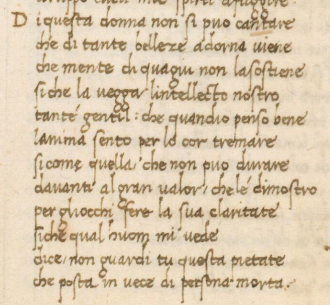 spirti a fuggire
Di questa donna non si puo cantare
che di tante belleze adorna viene
che mente di quagiu non la sostiene
si che la vegga lintellecto nostro
tante gentil: che quandio penso bene
lanima sento per lo cor tremare
si come quella, che non puo durare
davanti al gran valor, che le dimostro
per gliocchi fere la sua claritate
si che qual huom mi vede
dice, non guardi tu questa pietate
che posta in vece di persona morta.